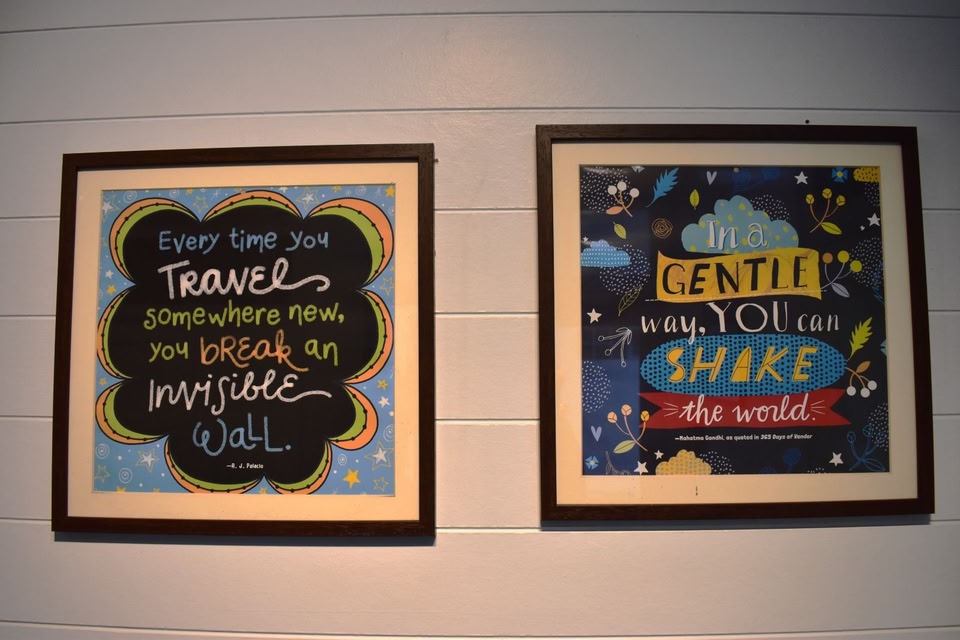 Every time you
Travel
somewhere new,
you bReak an
Invisible
WaLL.
—R. J. Palacio
In a
GENTLE
way, YOU can
SHAKE
the world.
—Mahatma Gandhi, as quoted in 365 Days of Wonder